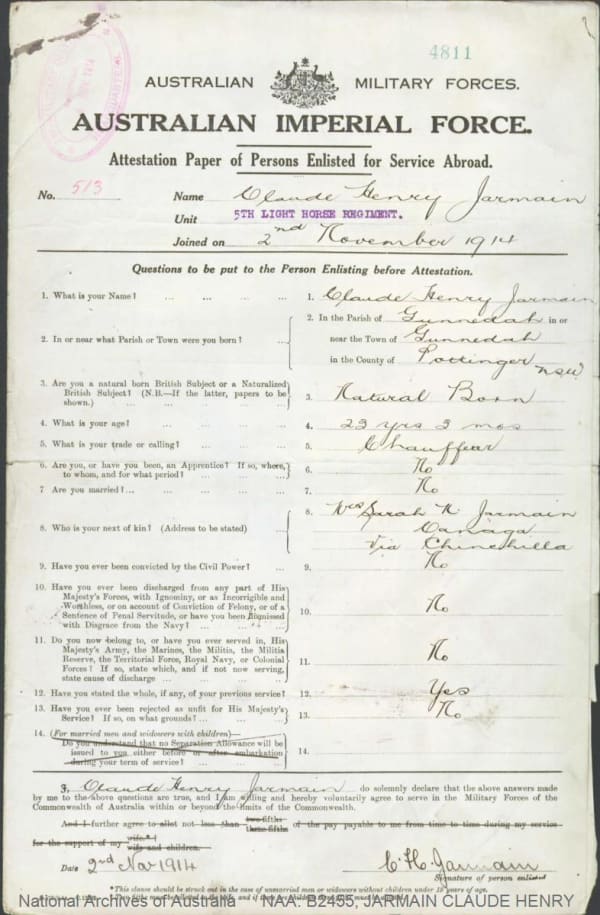 4811
AUSTRALIAN MILITARY FORCES.
AUSTRALIAN IMPERIAL FORCE.
Attestation Paper of Persons Enlisted for Service Abroad.
No. 513 Name Claude Henry Jarmain
Unit 5TH LIGHT HORSE REGIMENT.
Joined on 2nd November 1914
Questions to be put to the Person Enlisting before Attestation.
1. What is your Name? ... ... ... ... 1. Claude Henry Jarmain
2. In or near what Parish or Town were you born? ... 2. In the Parish of Gunnedah in or
near the Town of Gunnedah
in the County of Pottinger NSW
3. Are you a natural born British Subject or a Naturalized
British Subject? (N.B.—If the latter, papers to be
shown.) ... ... ... ... 3. Natural Born
4. What is your age? ... ... ... ... 4. 23 yrs 3 mos
5. What is your trade or calling? ... ... ... 5. Chauffear
6. Are you, or have you been, an Apprentice? If so, where,
to whom, and for what period? ... ... ... 6. No
7 Are you married?... ... ... ... ... 7. No
8. Who is your next of kin? (Address to be stated) ... 8. Mrs Sarah N. Jarmain
Canaga
Via Chinchilla
9. Have you ever been convicted by the Civil Power? ... 9. No
10. Have you ever been discharged from any part of His
Majesty's Forces, with Ignominy, or as Incorrigible and
Worthless, or on account of Conviction of Felony, or of a
Sentence of Penal Servitude, or have you been Dismissed
with Disgrace from the Navy? ... ... ... 10. No
11. Do you now belong to, or have you ever served in, His
Majesty's Army, the Marines, the Militia, the Militia
Reserve, the Territorial Force, Royal Navy, or Colonial
Forces? If so, state which, and if not now serving,
state cause of discharge ... ... ... ... 11. No
12. Have you stated the whole, if any, of your previous service? 12. Yes
13. Have you ever been rejected as unfit for His Majesty's
Service? If so, on what grounds? ... ... ... 13. No
14. (For married men and widowers with children)—
Do you understand that no Separation Allowance will be
issued to you either before or after embarkation
during your term of service? ... ... ... 14.
I, Claude Henry Jarmain do solemnly declare that the above answers made
by me to the above questions are true, and I am willing and hereby voluntarily agree to serve in the Military Forces of the
Commonwealth of Australia within or beyond the limits of the Commonwealth.
And I further agree to allot not less than two-fifths three-fifths of the pay payable to me from time to time during my service
for the support of my wife.* wife and children.
Date 2nd Nov 1914 C. H. Jarmain
Signature of person enlisted
*This clause should be struck out in the case of unmarried men or widowers without children under 18 years of age.
National Archives of Australia NAA: B2455, JARMAIN CLAUDE HENRY